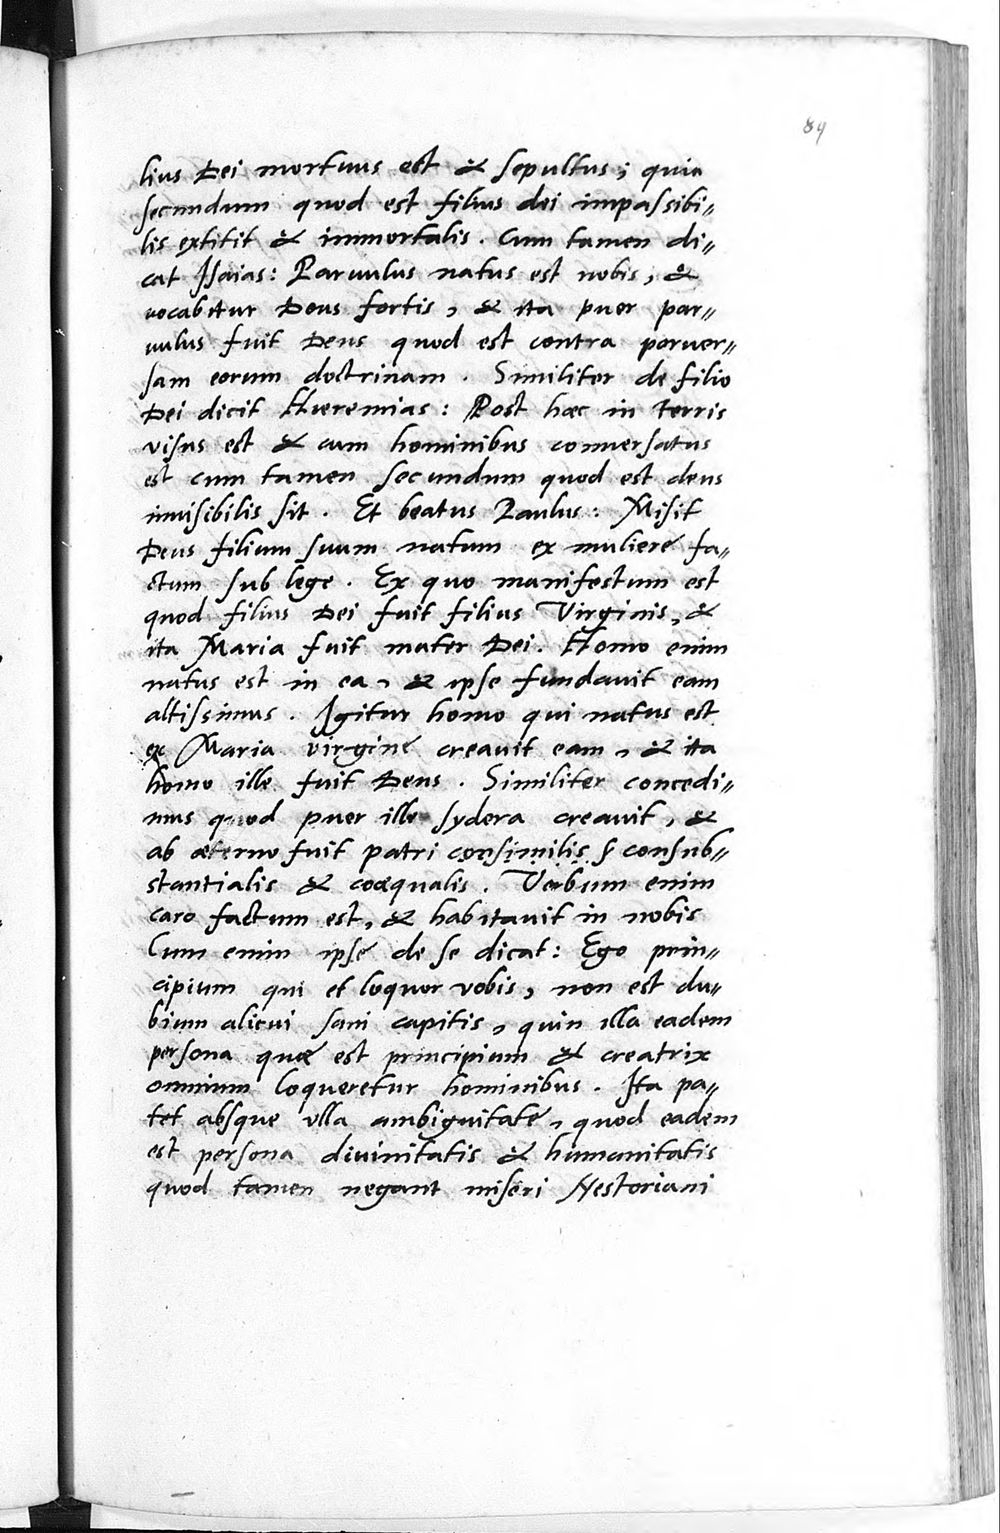 84
lius Dei mortuus est & sepultus; quia
secundum quod est filius dei impassibi„
lis extitit & immortalis. Cum tamen di„
cat Isaias: Paruulus natus est nobis, &
vocabitur Deus fortis, & ita puer par„
uulus fuit Deus quod est contra peruer„
sam eorum doctrinam. Similiter de filio
Dei dicit Hieremias: Post hæc in terris
visus est & cum hominibus conuersatus
est cum tamen secundum quod est deus
inuisibilis sit. Et beatus Paulus: Misit
Deus filium suum natum ex muliere fa„
ctum sub lege. Ex quo manifestum est
quod filius Dei fuit filius Virginis, &
ita Maria fuit mater Dei. Homo enim
natus est in ea, & ipse fundauit eam
altissimus. Igitur homo qui natus est
ex Maria virgine creauit eam, & ita
homo ille fuit Deus. Similiter concedi„
mus quod puer ille sydera creauit, &
ab æterno fuit patri consimilis consub„
stantialis & coæqualis. Verbum enim
caro factum est, & habitauit in nobis
Cum enim ipse de se dicat: Ego prin„
cipium qui et loquor vobis, non est du„
bium alicui sani capitis, quin illa eadem
persona quæ est principium & creatrix
omnium loqueretur hominibus. Ita pa„
tet absque vlla ambiguitate, quod eadem
est persona diuinitatis & humanitatis
quod tamen negant miseri Nestoriani